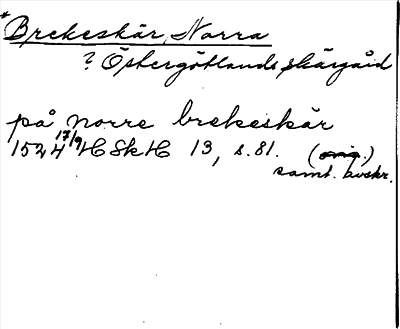 *Brekeskär, Norra
? Östergötlands skärgård
på norre brekeskär
1524 17/9 HSkH 13, s. 81. (orig.)
samt. avskr.